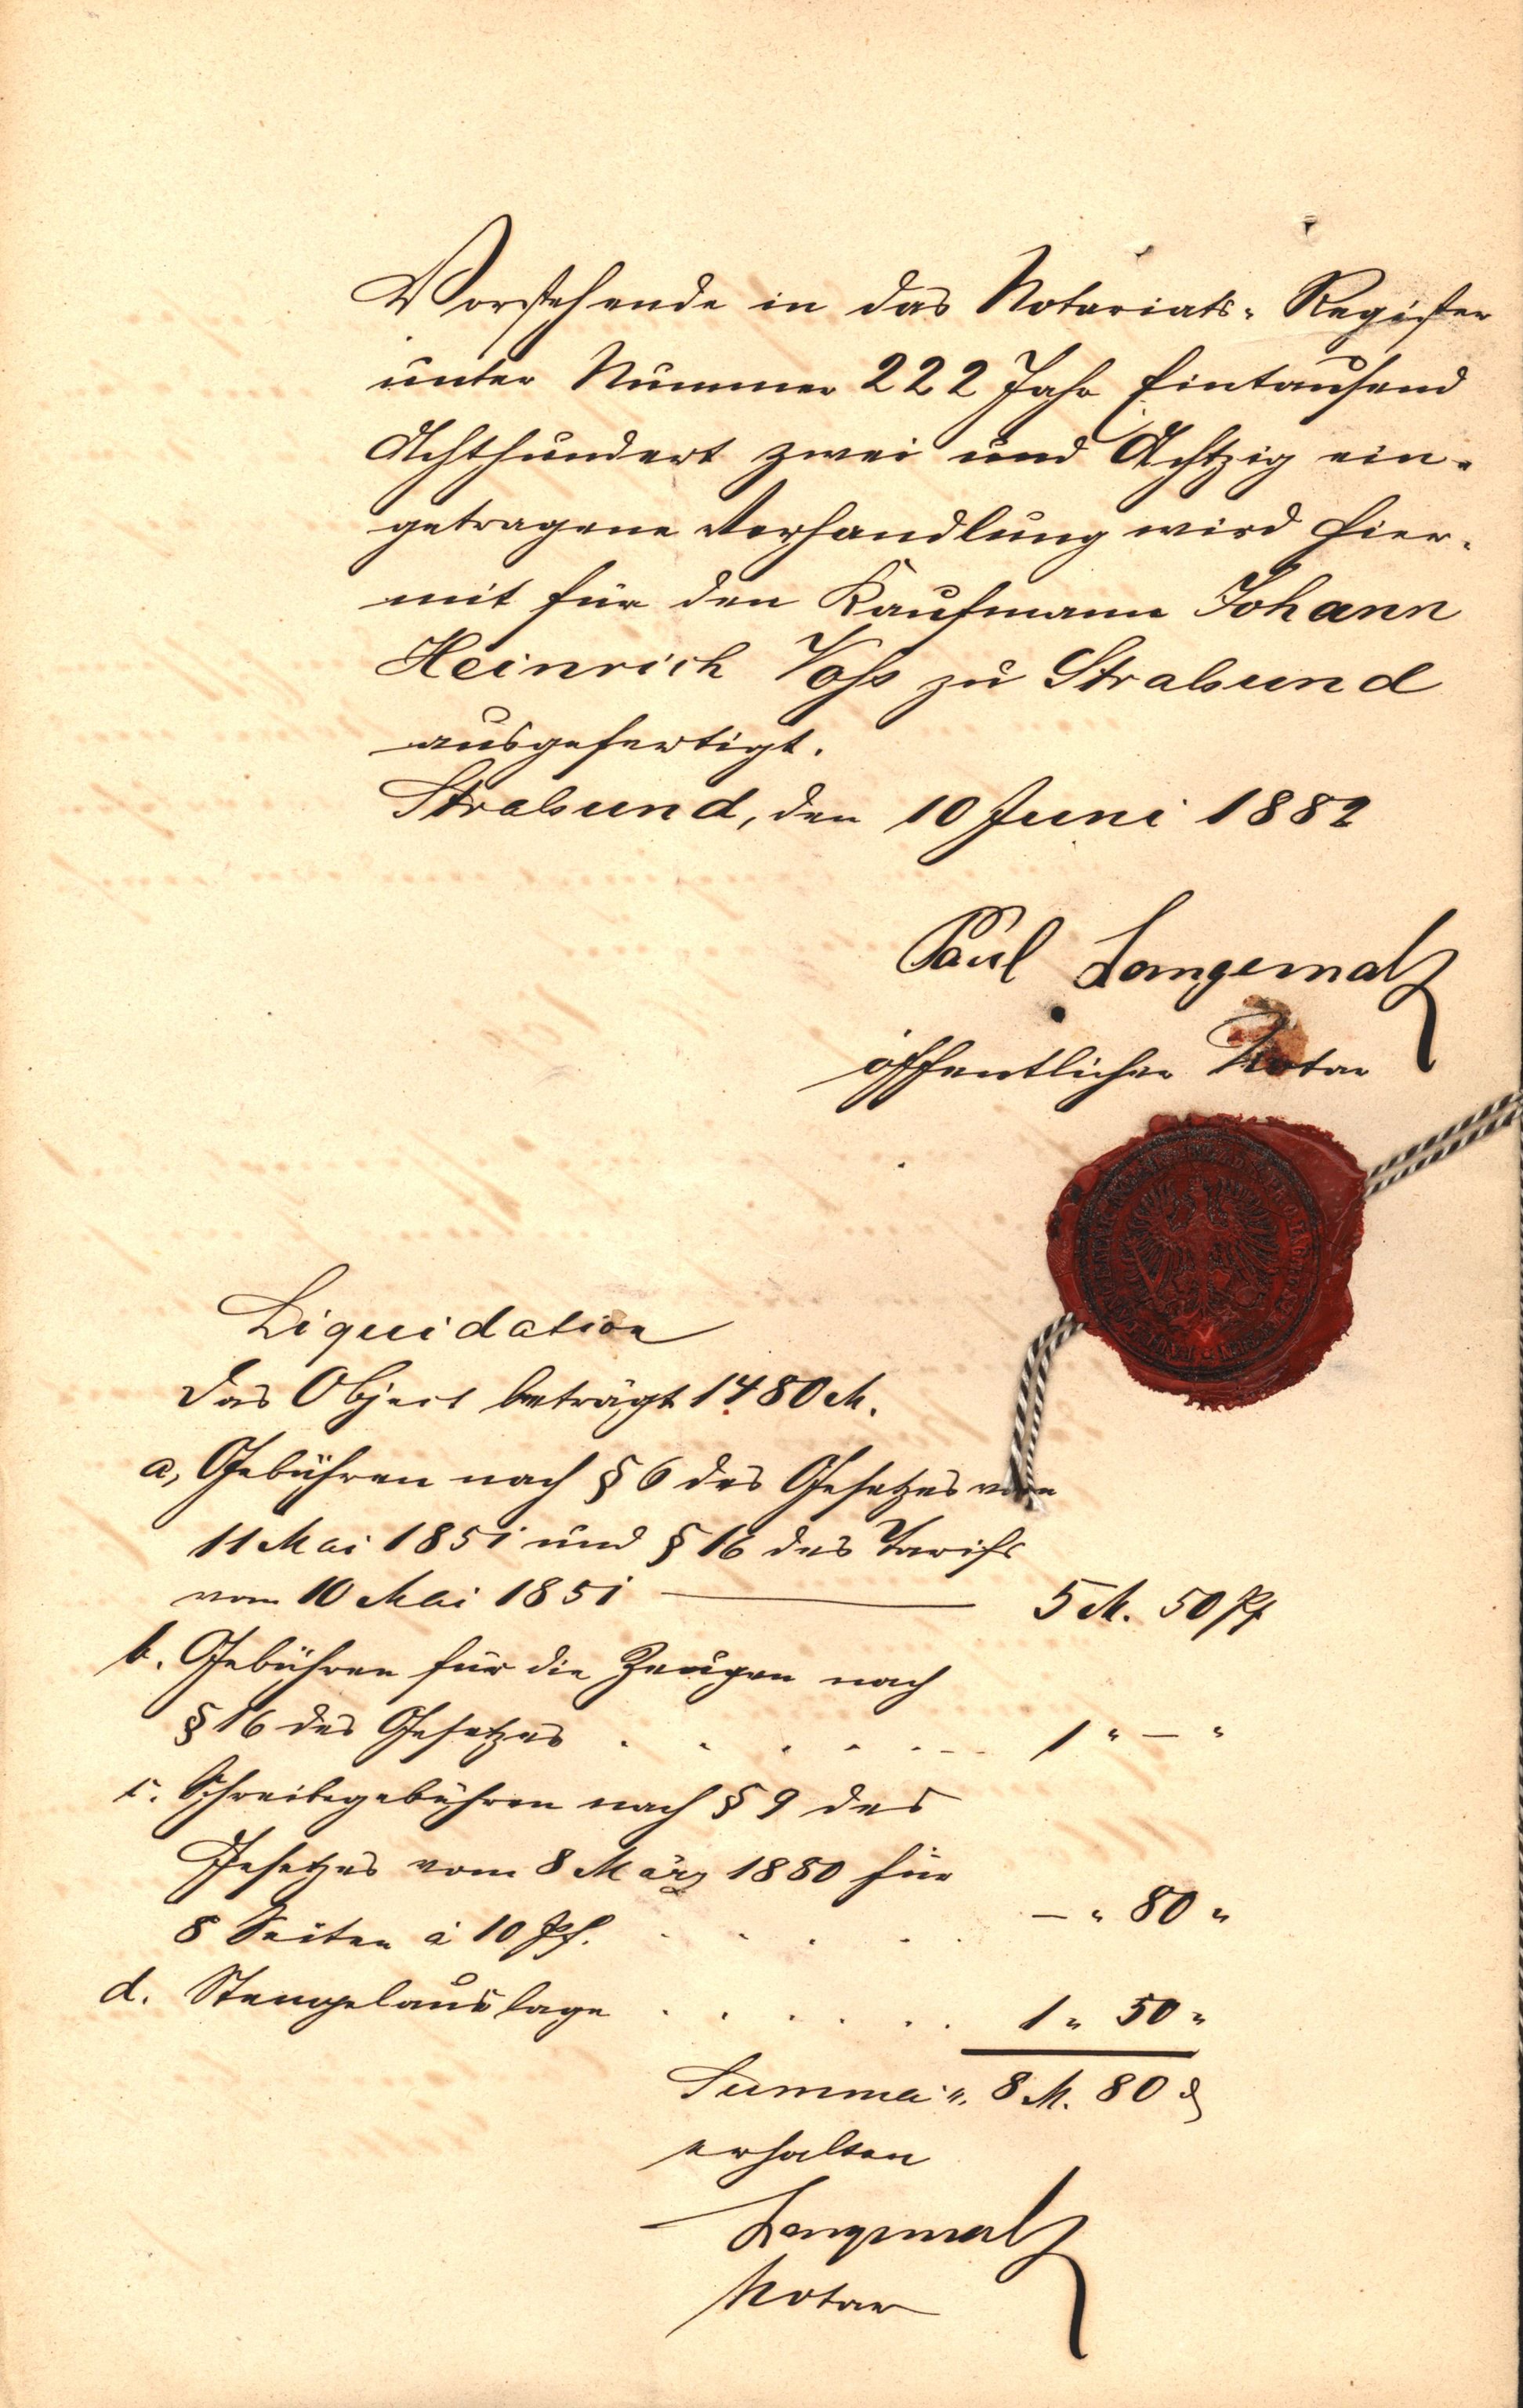 Vorstehende in das Notariats-Register
unter Nummer 222 Jahr Eintausend
Achthundert zwei und Achtzig ein-
getragene Verhandlung wird hier-
mit für den Kaufmann Johann
Heinrich Voss zu Stralsund
ausgefertigt.
Stralsund, den 10 Juni 1882
Paul Langemak
öffentlicher Notar
Liquidation
Das Object beträgt 1480 M.
a, Gebühren nach § 6 des Gesetzes vom
11 Mai 1851 und § 16 des Tarifs
vom 10 Mai 1851 — 5 M. 50 Pf
b. Gebühren für die Zeugen nach
§ 16 des Gesetzes . . . . . . 1 " — "
c. Schreibegebühren nach § 9 des
Gesetzes vom 8 März 1880 für
8 Seiten à 10 Pf. . . . . . — " 80 "
d. Stempelauslage . . . . . . 1 " 50 "
Summa ". 8 M. 80 ₰
erhalten
Langemak
Notar